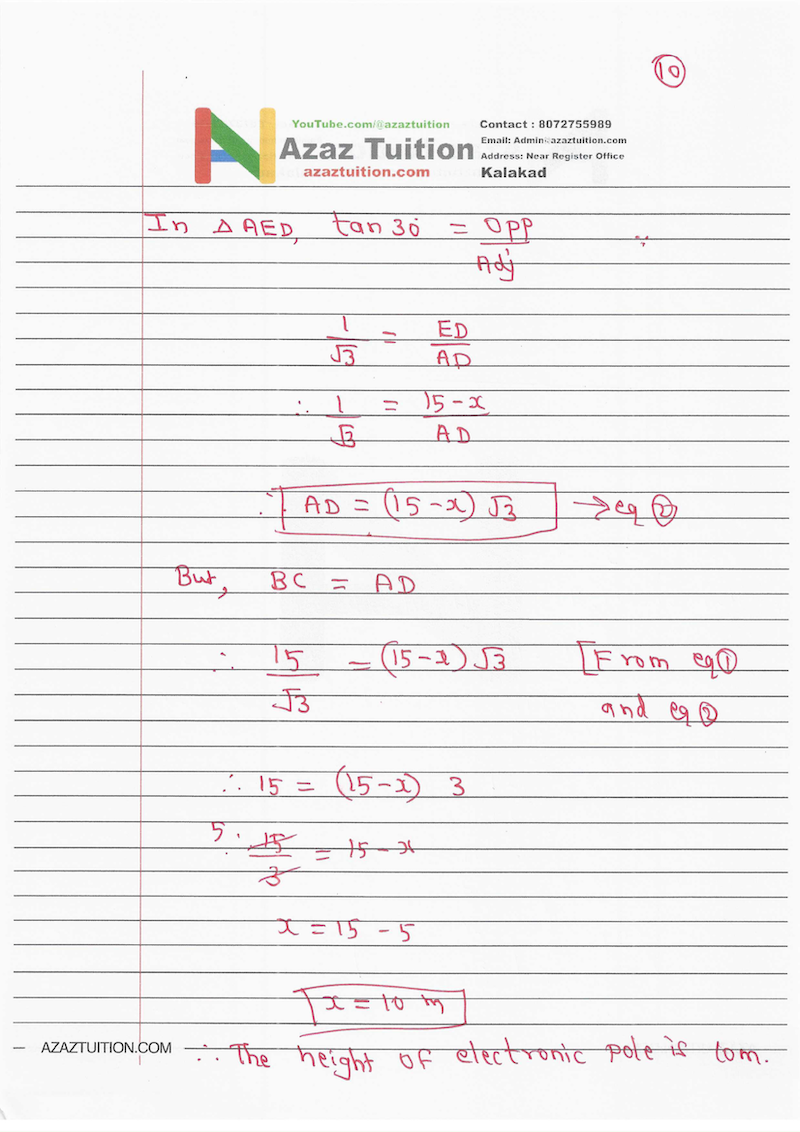 ⑩
YouTube.com/@azaztuition
Azaz Tuition
azaztuition.com
Contact : 8072755989
Email: Admin@azaztuition.com
Address: Near Register Office
Kalakad
In △ AED, tan 30° = Opp / Adj
1/√3 = ED/AD
∴ 1/√3 = 15-x/AD
∴ AD = (15-x) √3 → eq ②
But, BC = AD
∴ 15/√3 = (15-x) √3 [From eq ①
and eq ②
∴ 15 = (15-x) 3
5 ∴ 15/3 = 15-x
x = 15 - 5
x = 10 m
∴ The height of electronic pole is 10m.
AZAZTUITION.COM